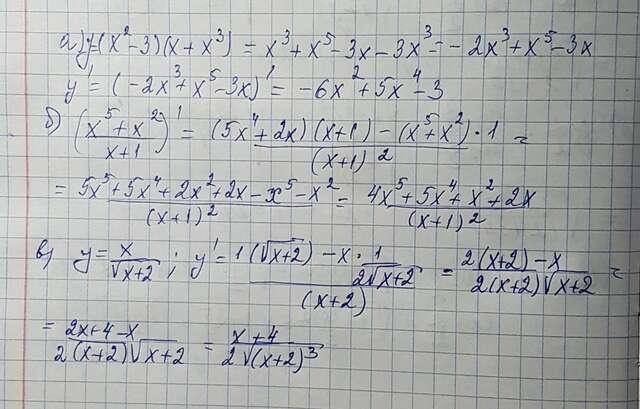 а) y=(x²-3)(x+x³) = x³+x⁵-3x-3x³=-2x³+x⁵-3x
y' = (-2x³+x⁵-3x)' = -6x²+5x⁴-3
б) ((x⁵+x²)/(x+1))' = ((5x⁴+2x)(x+1)-(x⁵+x²)·1)/(x+1)² =
= (5x⁵+5x⁴+2x²+2x-x⁵-x²)/(x+1)² = (4x⁵+5x⁴+x²+2x)/(x+1)²
в) y=x/√(x+2); y'=(1(√(x+2))-x·1/(2√(x+2)))/(x+2) = (2(x+2)-x)/(2(x+2)√(x+2)) =
= (2x+4-x)/(2(x+2)√(x+2)) = (x+4)/(2√((x+2)³))